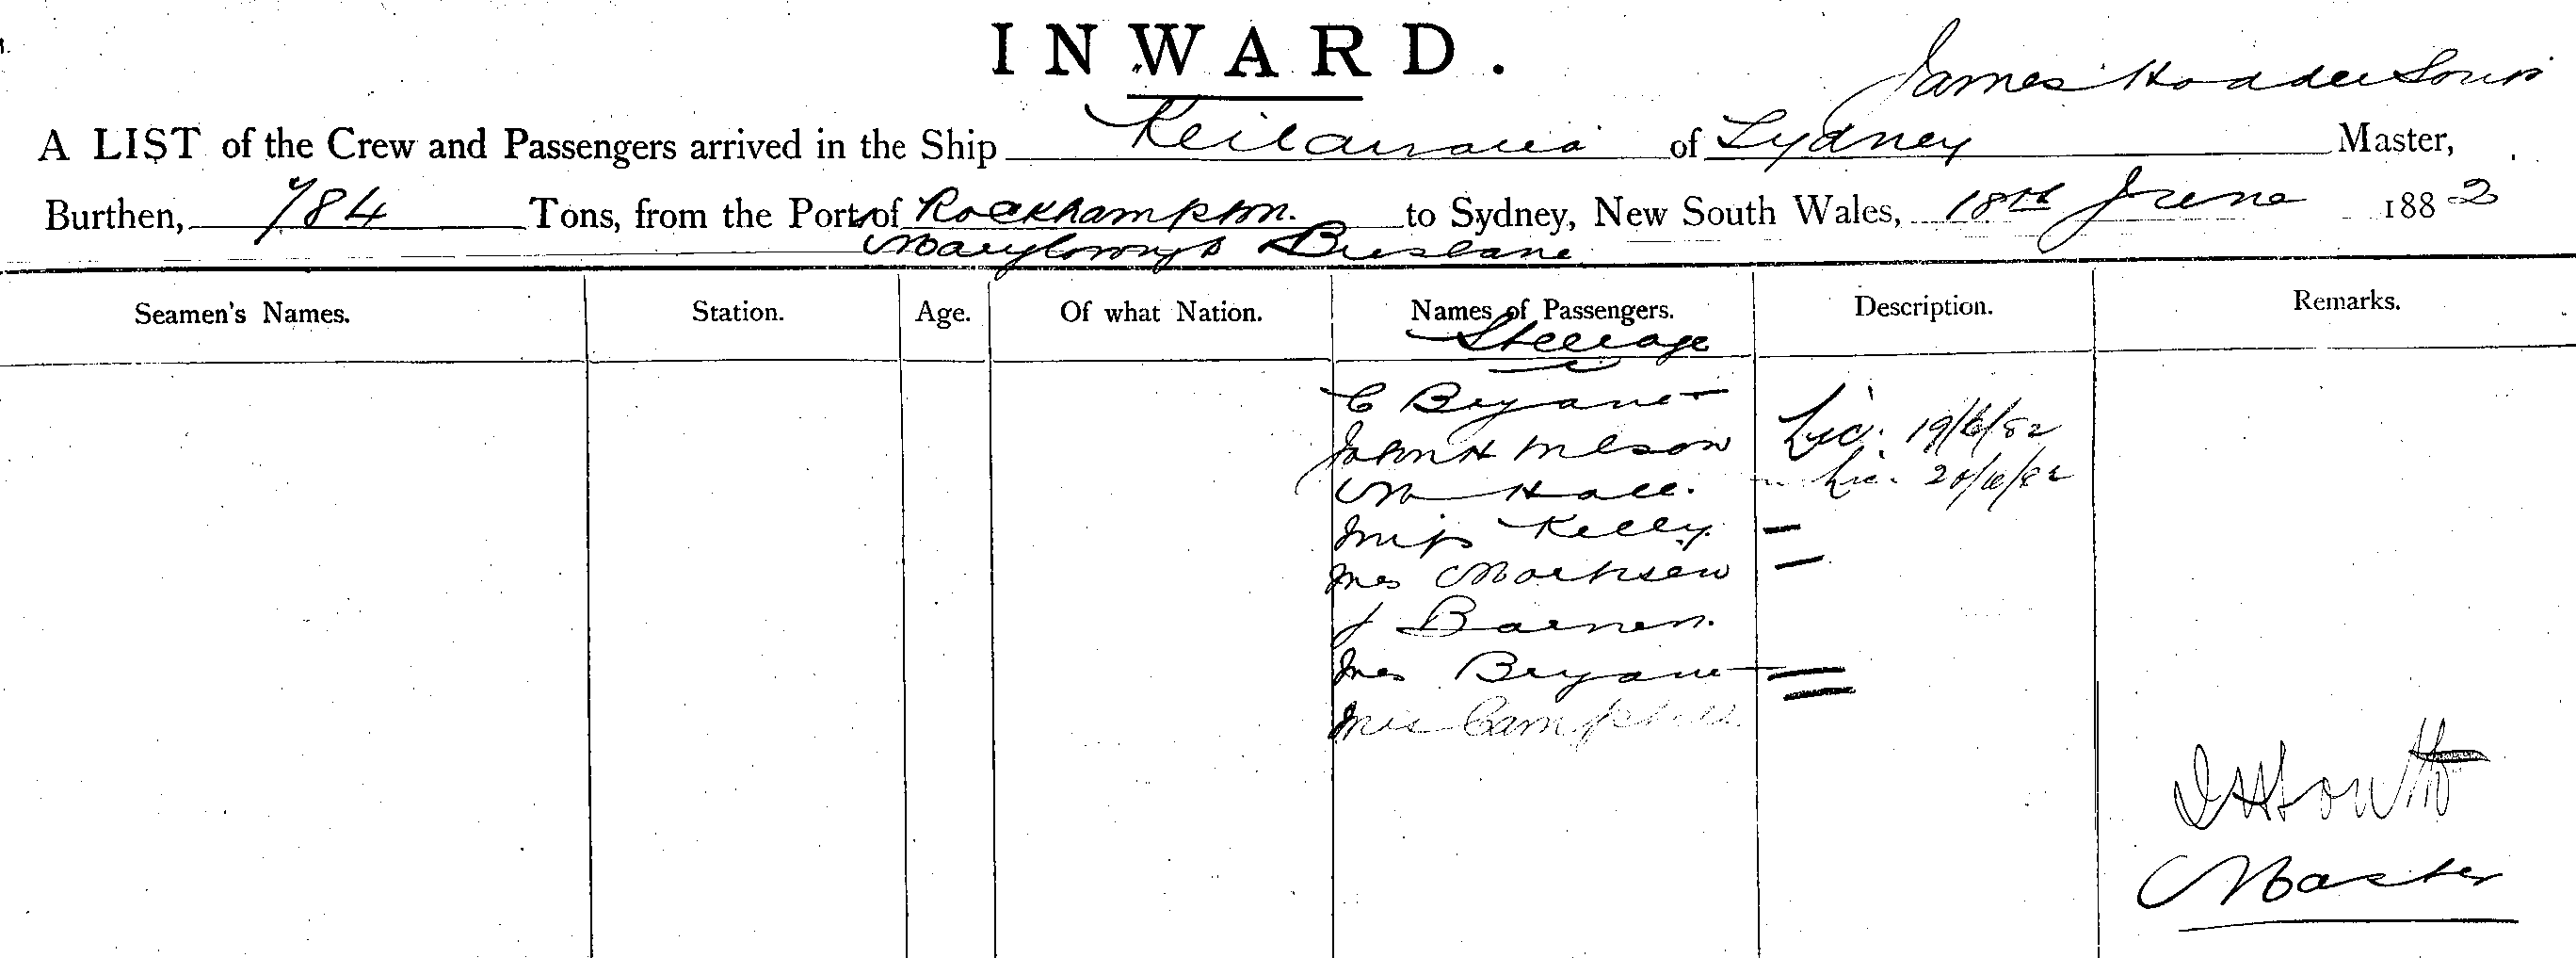 INWARD.
James
A LIST of the Crew and Passengers arrived in the Ship Keilawarra of Sydney Master,
Burthen, 784 Tons, from the Port of Rockhampton. to Sydney, New South Wales, 18th June 1882
Maryborough & Brisbane
Seamen's Names. Station. Age. Of what Nation. Names of Passengers. Description. Remarks.
Steerage
C Bryant
John H Lic. 19/6/82
M Hall. Lic. 20/6/82
Miss Kelly
Mrs
J Barnes.
Mrs Bryant
Mrs Campbell
Master